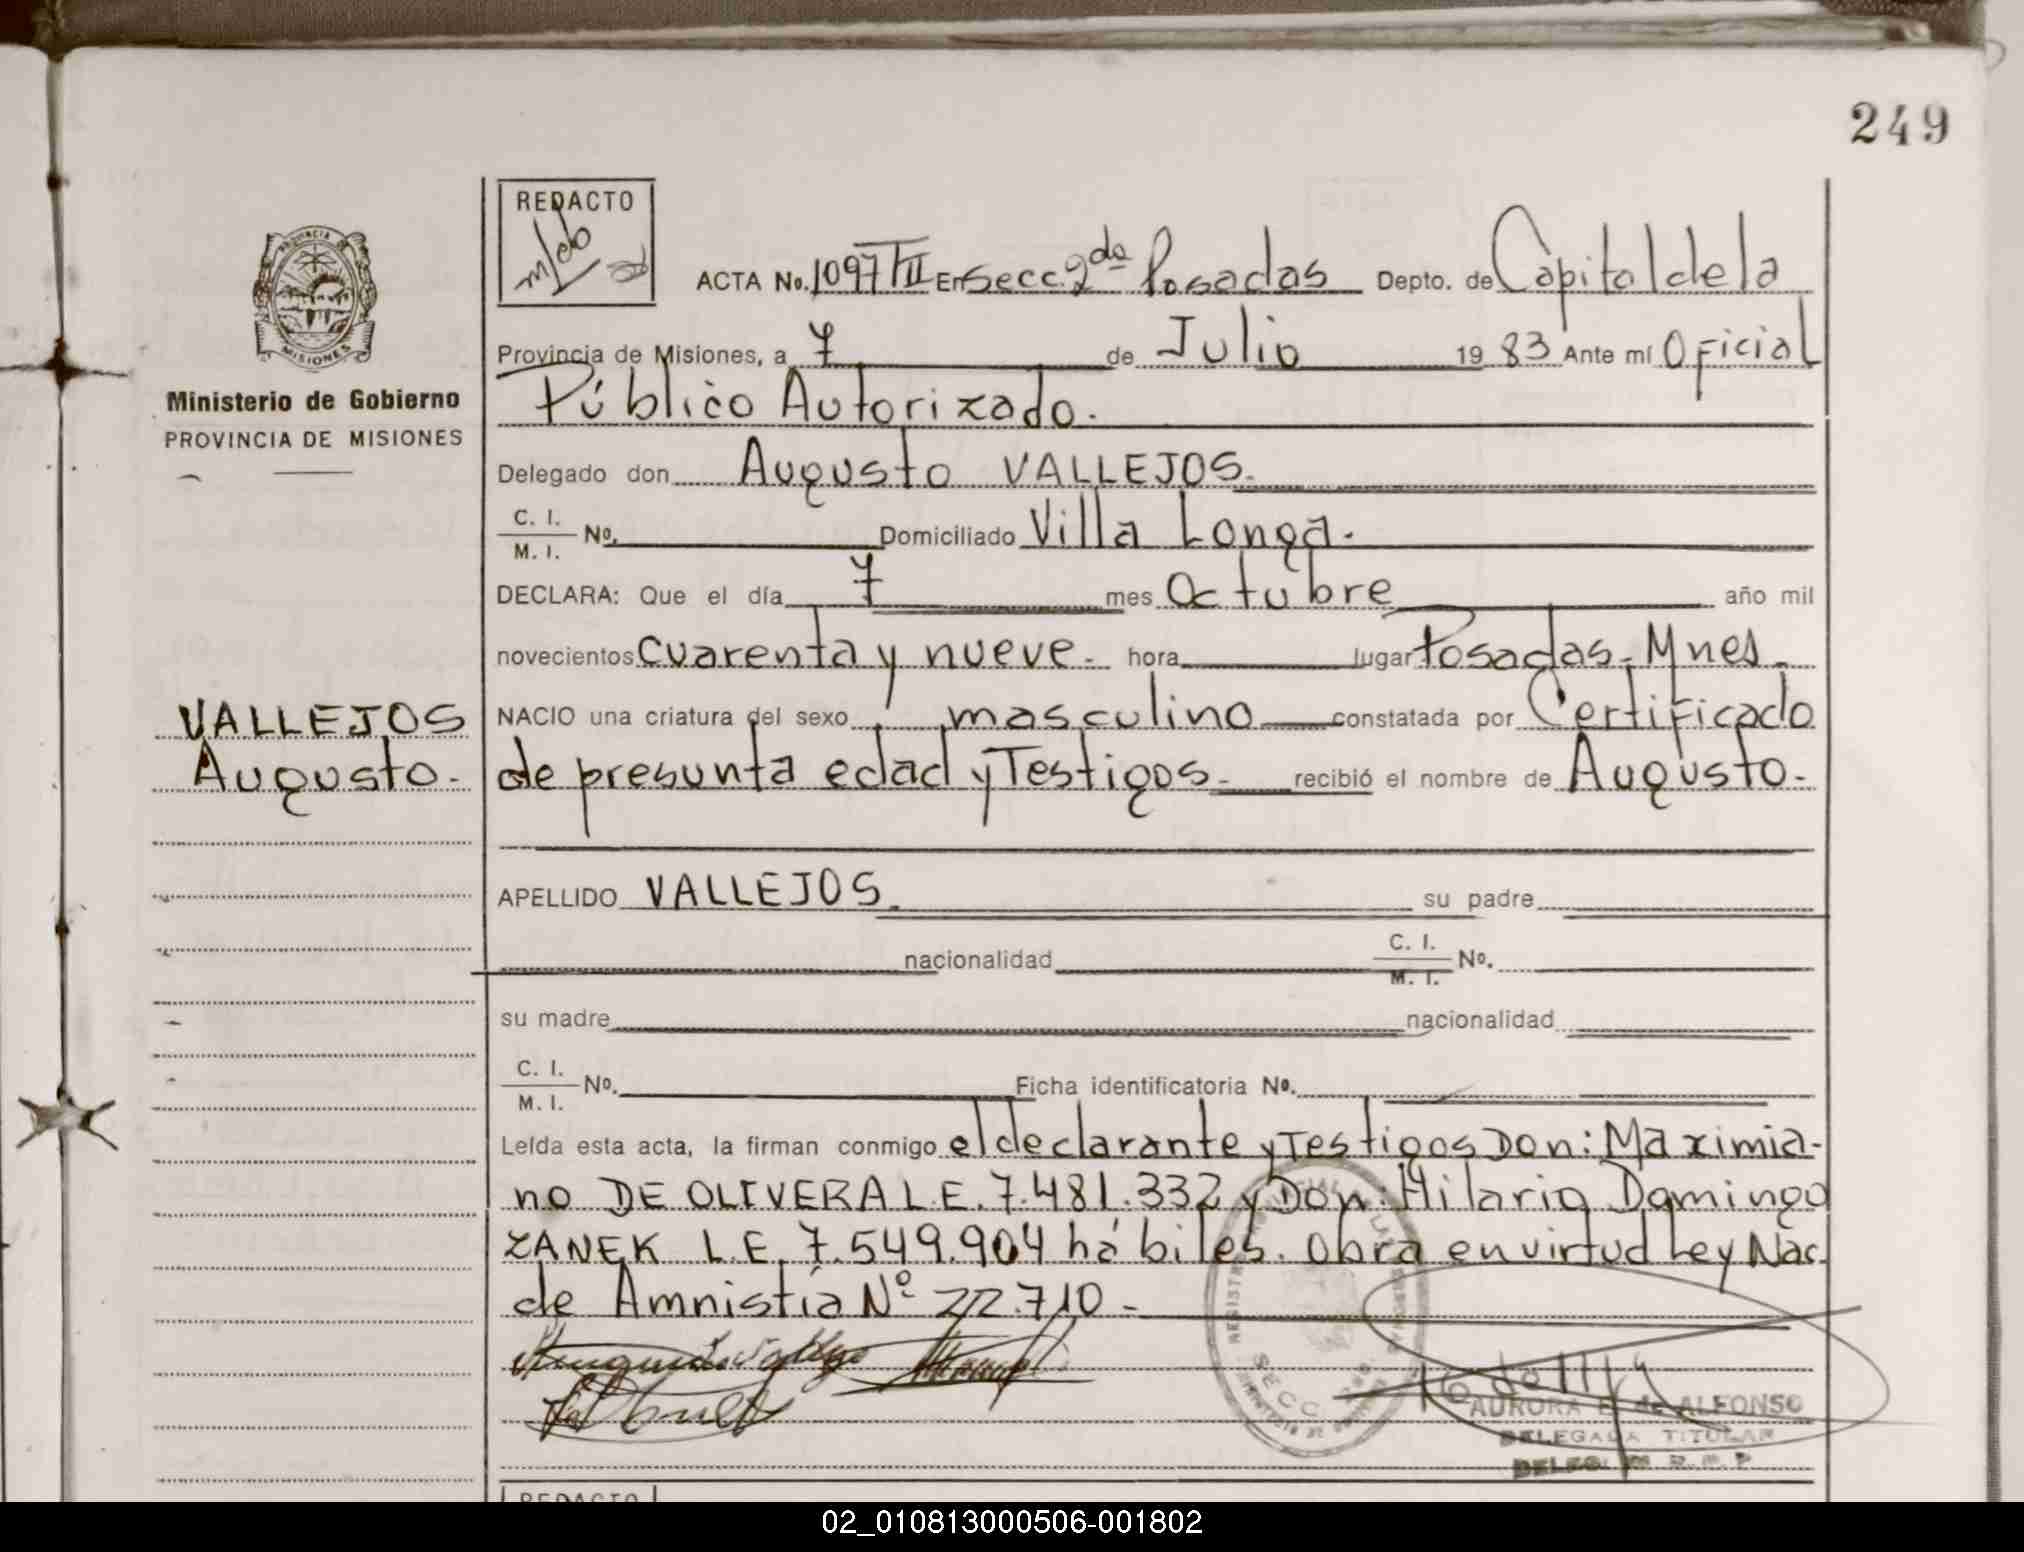 249
REDACTO
ACTA No. 1097 TII En Secc. 2da Posadas Depto. de Capital de la
Provincia de Misiones, a 7 de Julio 19 83 Ante mí Oficial
Público Autorizado.
Ministerio de Gobierno
PROVINCIA DE MISIONES
Delegado don Augusto VALLEJOS.
C. I.
M. I. No. Domiciliado Villa Longa.
DECLARA: Que el día 7 mes Octubre año mil
novecientos cuarenta y nueve. hora lugar Posadas. Mnes.
VALLEJOS
Augusto.
NACIO una criatura del sexo masculino constatada por Certificado
de presunta edad y Testigos. recibió el nombre de Augusto.
APELLIDO VALLEJOS. su padre
nacionalidad C. I.
M. I. No.
su madre nacionalidad
C. I.
M. I. No. Ficha identificatoria No.
Leída esta acta, la firman conmigo el declarante y Testigos Don: Maximia-
no DE OLIVERA L.E. 7.481.332 y Don: Hilario Domingo
ZANEK L.E. 7.549.904 hábiles. Obra en virtud Ley Nac.
de Amnistía Nº 22.710 -
SECC.
AURORA E. de ALFONSO
DELEGADA TITULAR
REDACTO
02_010813000506-001802